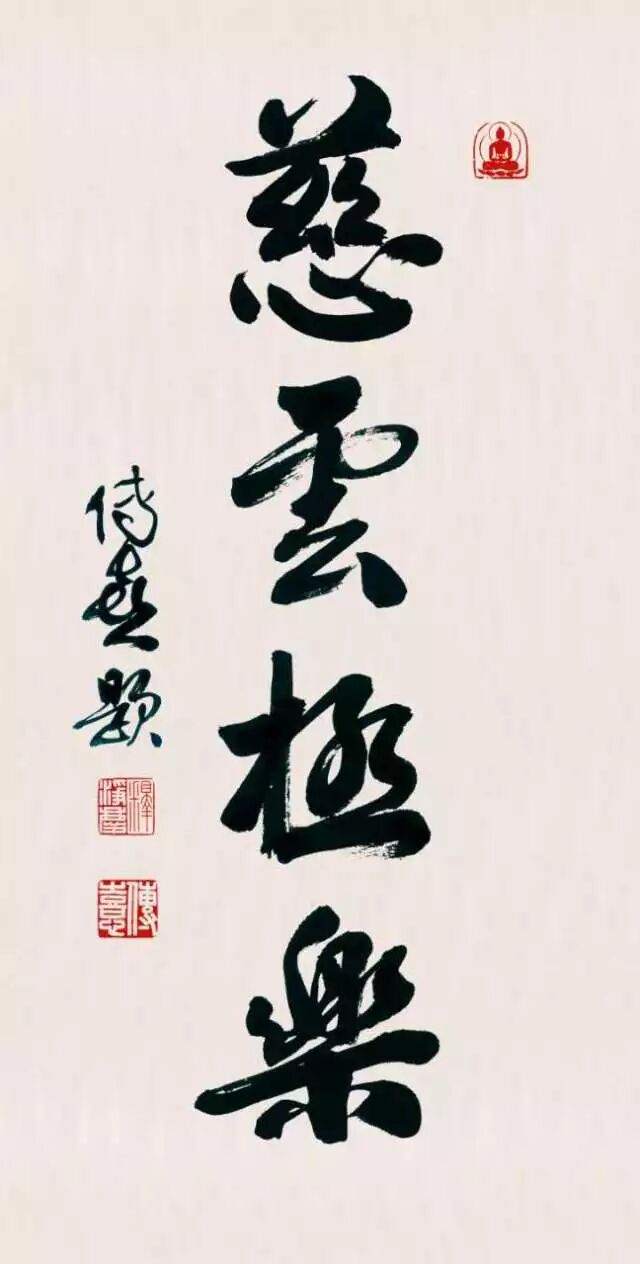 慈雲極樂
傳喜題
傳憙